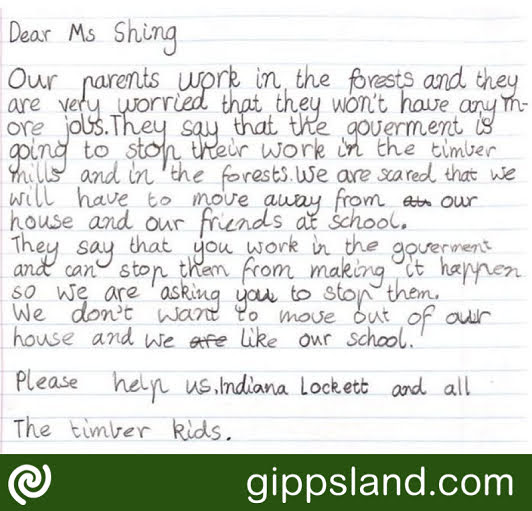 Dear Ms Shing
Our parents work in the forests and they
are very worried that they won't have any m-
ore jobs.They say that the goverment is
going to stop their work in the timber
mills and in the forests.We are scared that we
will have to move away from our
house and our friends at school.
They say that you work in the goverment
and can stop them from making it happen
so we are asking you to stop them.
We don't want to move out of our
house and we are like our school.
Please help us.Indiana Lockett and all
The timber kids.
gippsland.com